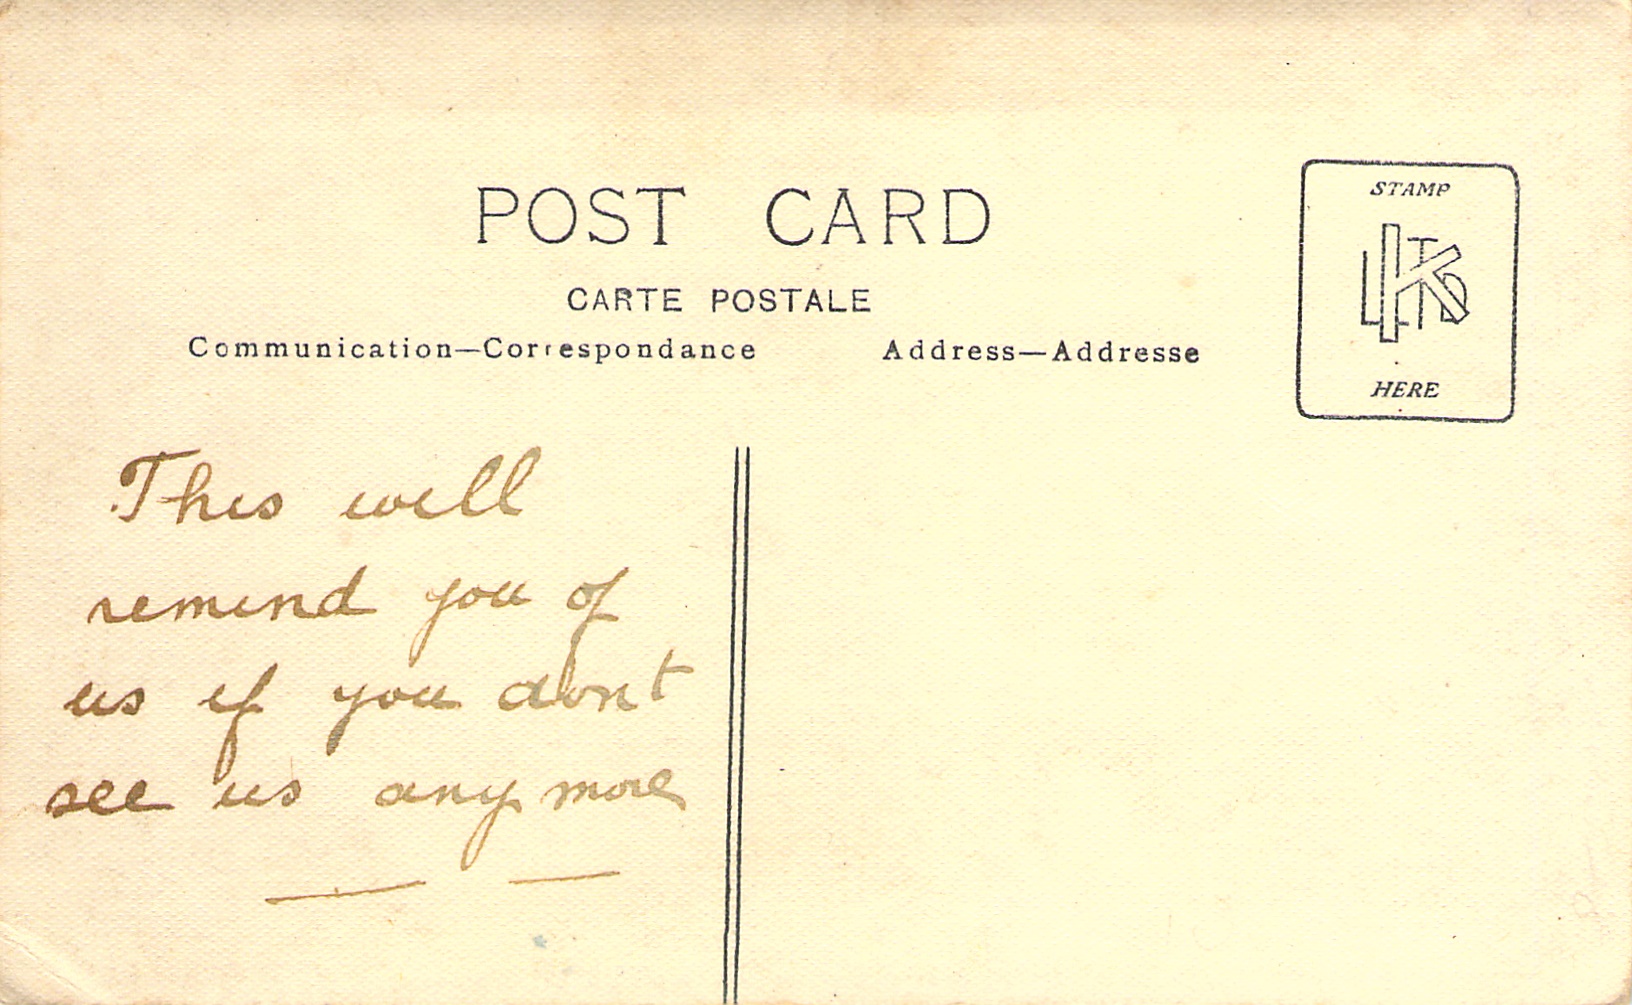 POST CARD
CARTE POSTALE
Communication—Correspondance
Address—Addresse
STAMP
K LTD
HERE
This will
remind you of
us if you dont
see us any more